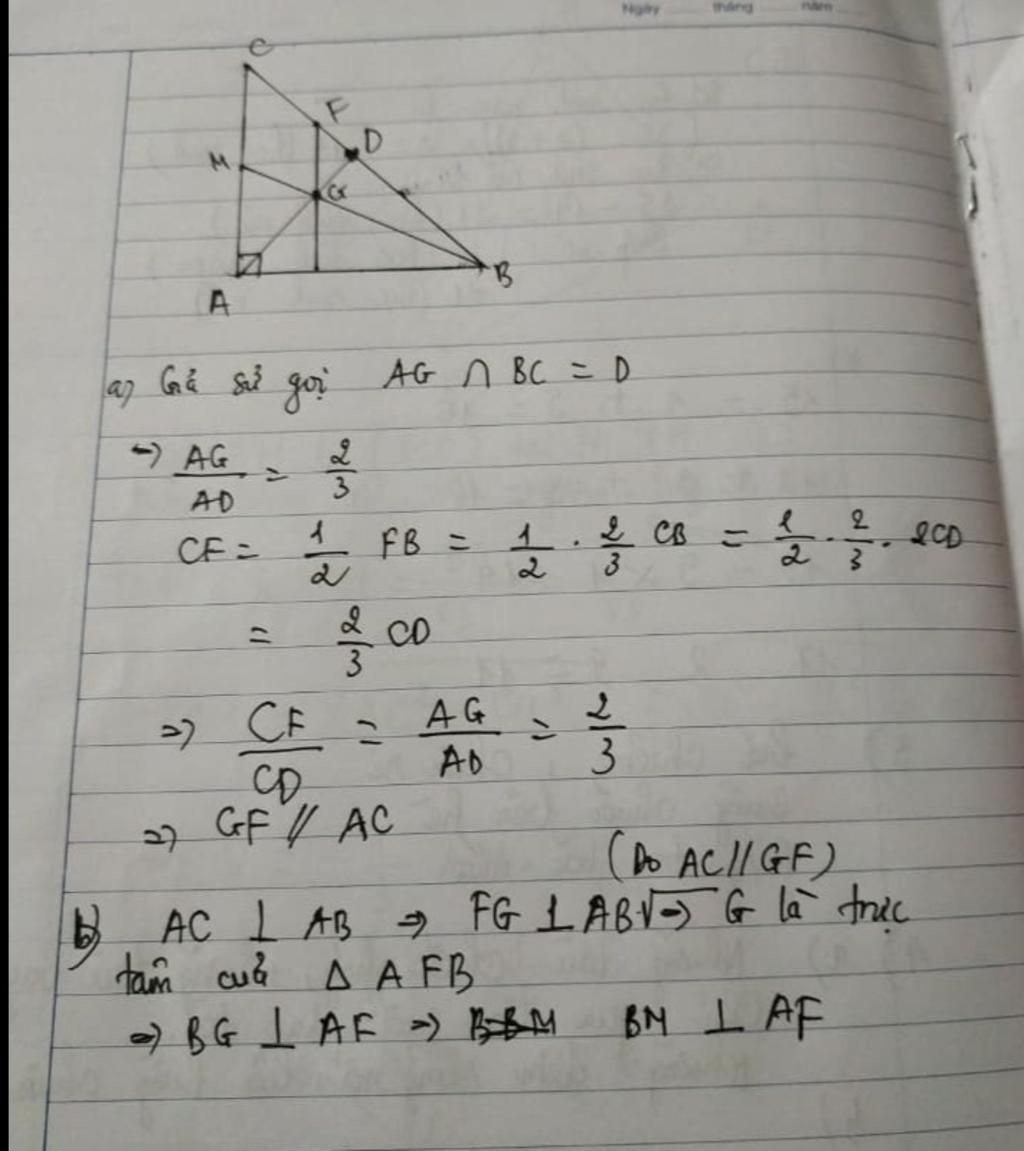 Ngày tháng năm
C
F
D
M
G
A
B
a) Giả sử gọi AG ∩ BC = D
→ AG/AD = 2/3
CF = 1/2 FB = 1/2 . 2/3 CB = 1/2 . 2/3 . 2CD
= 2/3 CD
=> CF/CD = AG/AD = 2/3
=> GF // AC
(Do AC // GF)
b) AC ⊥ AB => FG ⊥ AB √ => G là trực
tâm cuả Δ AFB
=> BG ⊥ AF => BM ⊥ AF